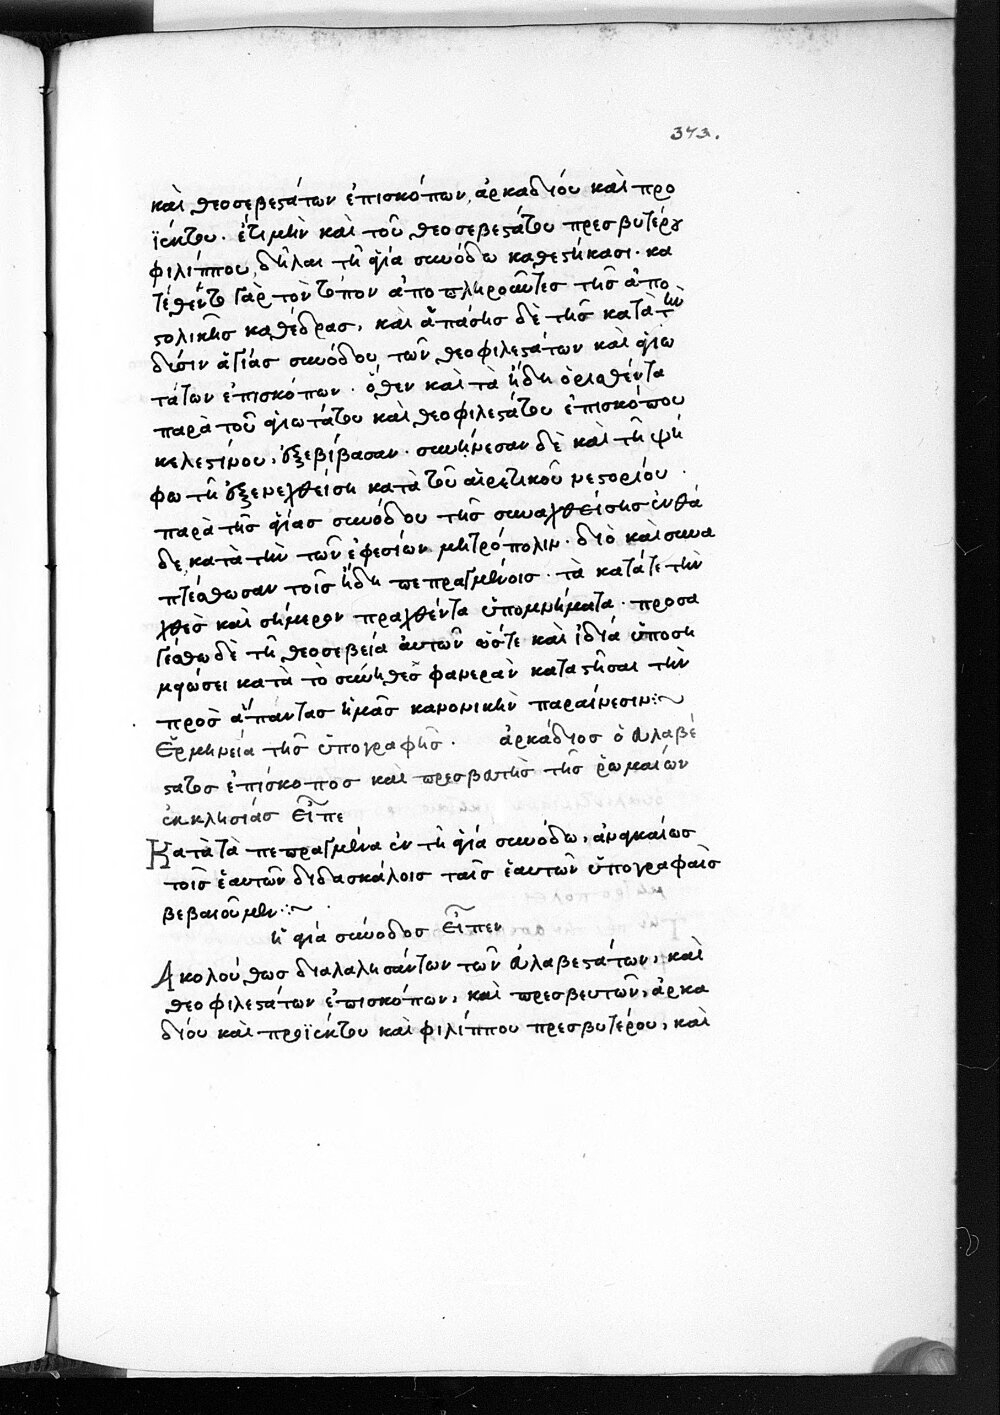 373.
καὶ θεοσεβεστάτων ἐπισκόπων, ἀρκαδίου καὶ προ
ϊέκτου. ἔτι μὴν καὶ τοῦ θεοσεβεστάτου πρεσβυτέρου
φιλίππου, δῆλαι τῇ ἁγία συνόδω καθεστήκασι. κα
τέθεντο γὰρ τὸν τόπον ἀποπληροῦντες τῆς ἀπο
στολικῆς καθέδρας, καὶ ἁπάσης δὲ τῆς κατὰ τὴν
δύσιν ἁγίας συνόδου τῶν θεοφιλεστάτων καὶ ἁγιω
τάτων ἐπισκόπων. ὅθεν καὶ τὰ ἤδη ὁρισθέντα
παρὰ τοῦ ἁγιωτάτου καὶ θεοφιλεστάτου ἐπισκόπου
κελεστίνου, ἐξεβίβασαν. συνήνεσαν δὲ καὶ τῇ ψή
φω τῇ ἐξενεχθείση κατὰ τοῦ αἱρετικοῦ νεστορίου
παρὰ τῆς ἁγίας συνόδου τῆς συναχθείσης ἐνθά
δε κατὰ τὴν τῶν ἐφεσίων μητρόπολιν. διὸ καὶ συνα
πτέσθωσαν τοῖς ἤδη πεπραγμένοις. τὰ κατά τε τὴν
χθὲς καὶ σήμερον πραχθέντα ὑπομνήματα. προσα
γέσθω δὲ τῇ θεοσεβεία αὐτῶν ὥστε καὶ ἰδιά ὑποση
μειώσει κατὰ τὸ σύνηθες φανερὰν καταστῆσαι τὴν
πρὸς ἅπαντας ἡμᾶς κανονικὴν παραίνεσιν:~
Ἑρμηνεία τῆς ὑπογραφῆς. ἀρκάδιος ὁ εὐλαβέ
στατος ἐπίσκοπος καὶ πρεσβευτὴς τῆς ῥωμαίων
ἐκκλησίας εἶπε
Κατὰ τὰ πεπραγμένα ἐν τῇ ἁγία συνόδω, ἀναγκαίως
τοῖς ἑαυτῶν διδασκάλοις ταῖς ἑαυτῶν ὑπογραφαῖς
βεβαιοῦμεν:~
ἡ ἁγία σύνοδος εἶπεν
Ἀκολούθως διαλαλησάντων τῶν εὐλαβεστάτων, καὶ
θεοφιλεστάτων ἐπισκόπων, καὶ πρεσβευτῶν, ἀρκα
δίου καὶ προϊέκτου καὶ φιλίππου πρεσβυτέρου, καὶ